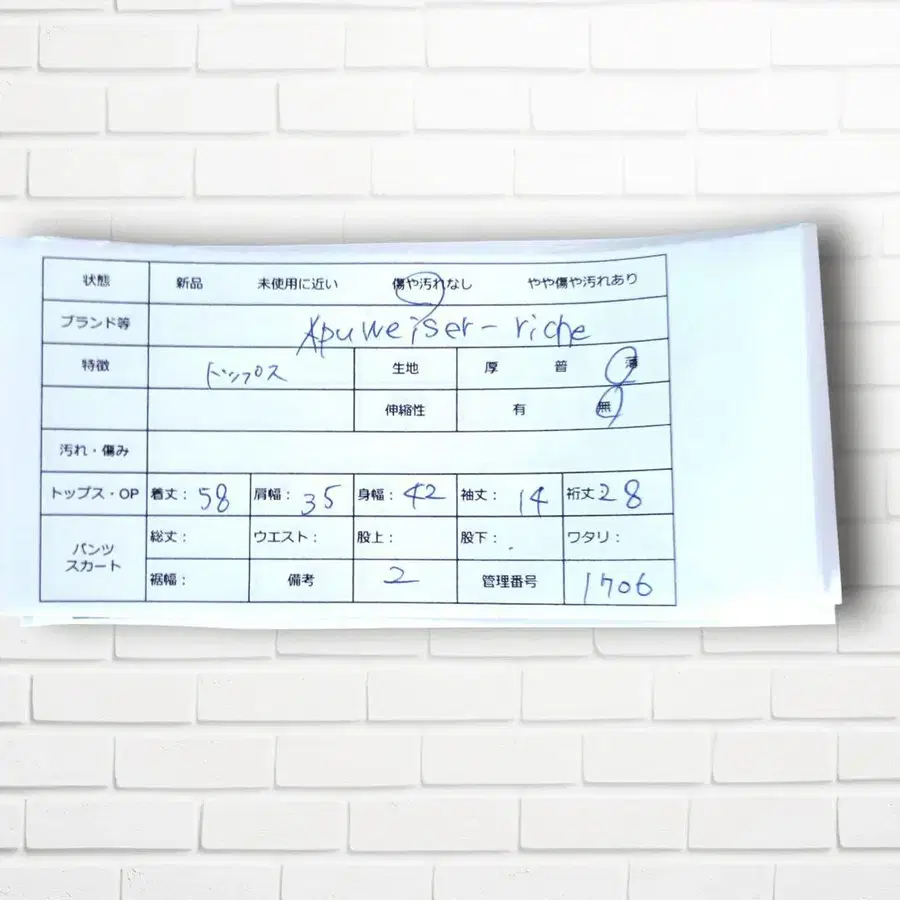 状態 新品 未使用に近い 傷や汚れなし やや傷や汚れあり
ブランド等 Apuweiser-riche
特徴 トップス 生地 厚 普 薄
伸縮性 有 無
汚れ・傷み
トップス・OP 着丈: 58 肩幅: 35 身幅: 42 袖丈: 14 裄丈 28
パンツ スカート 総丈: ウエスト: 股上: 股下: ワタリ:
裾幅: 備考 2 管理番号 1706